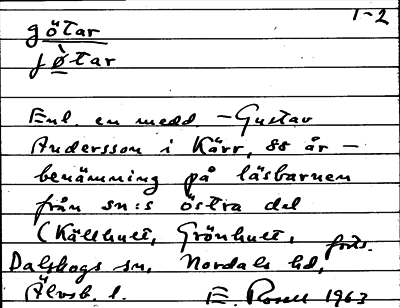 1-2
götar
jø̀tar
Enl. en medd – Gustav
Andersson i Kärr, 88 år –
benämning på läsbarnen
från sn:s östra del
(Källhult, Grönhult, forts.
Dalskogs sn, Nordals hd,
Älvsb. l. E. Rosell 1963